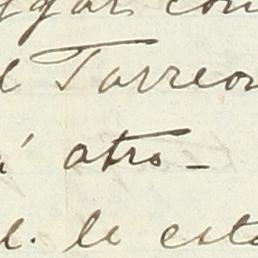 ggar con
l Torreon
atro-
d. le esta